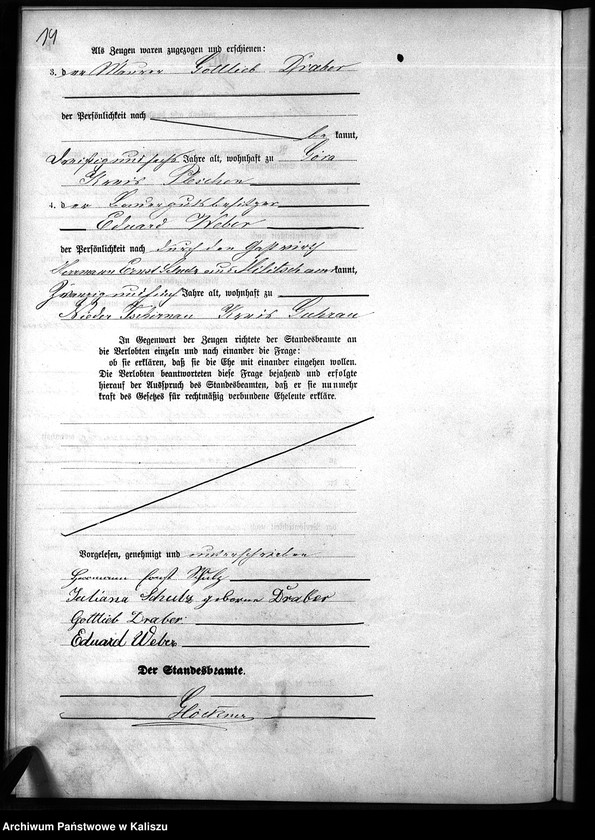 14
Als Zeugen waren zugezogen und erschienen:
3. der Maurer Gottlieb Draber
der Persönlichkeit nach
be kannt,
dreißig und sechs Jahre alt, wohnhaft zu Gora
Kreis Pleschen
4. der Bauergutsbesitzer
Eduard Weber
der Persönlichkeit nach durch den Gastwirth
Herrmann Ernst Schulz aus Militsch anerkannt,
Zwanzig und Jahre alt, wohnhaft zu
Nieder Tschirnau Kreis Guhrau
In Gegenwart der Zeugen richtete der Standesbeamte an
die Verlobten einzeln und nach einander die Frage:
ob sie erklären, daß sie die Ehe mit einander eingehen wollen.
Die Verlobten beantworteten diese Frage bejahend und erfolgte
hierauf der Ausspruch des Standesbeamten, daß er sie nunmehr
kraft des Gesetzes für rechtmäßig verbundene Eheleute erkläre.
Vorgelesen, genehmigt und unterschrieben
Herrmann Ernst Schulz
Juliana Schulz geborne Draber
Gottlieb Draber
Eduard Weber
Der Standesbeamte.
Glöckner
Archiwum Państwowe w Kaliszu